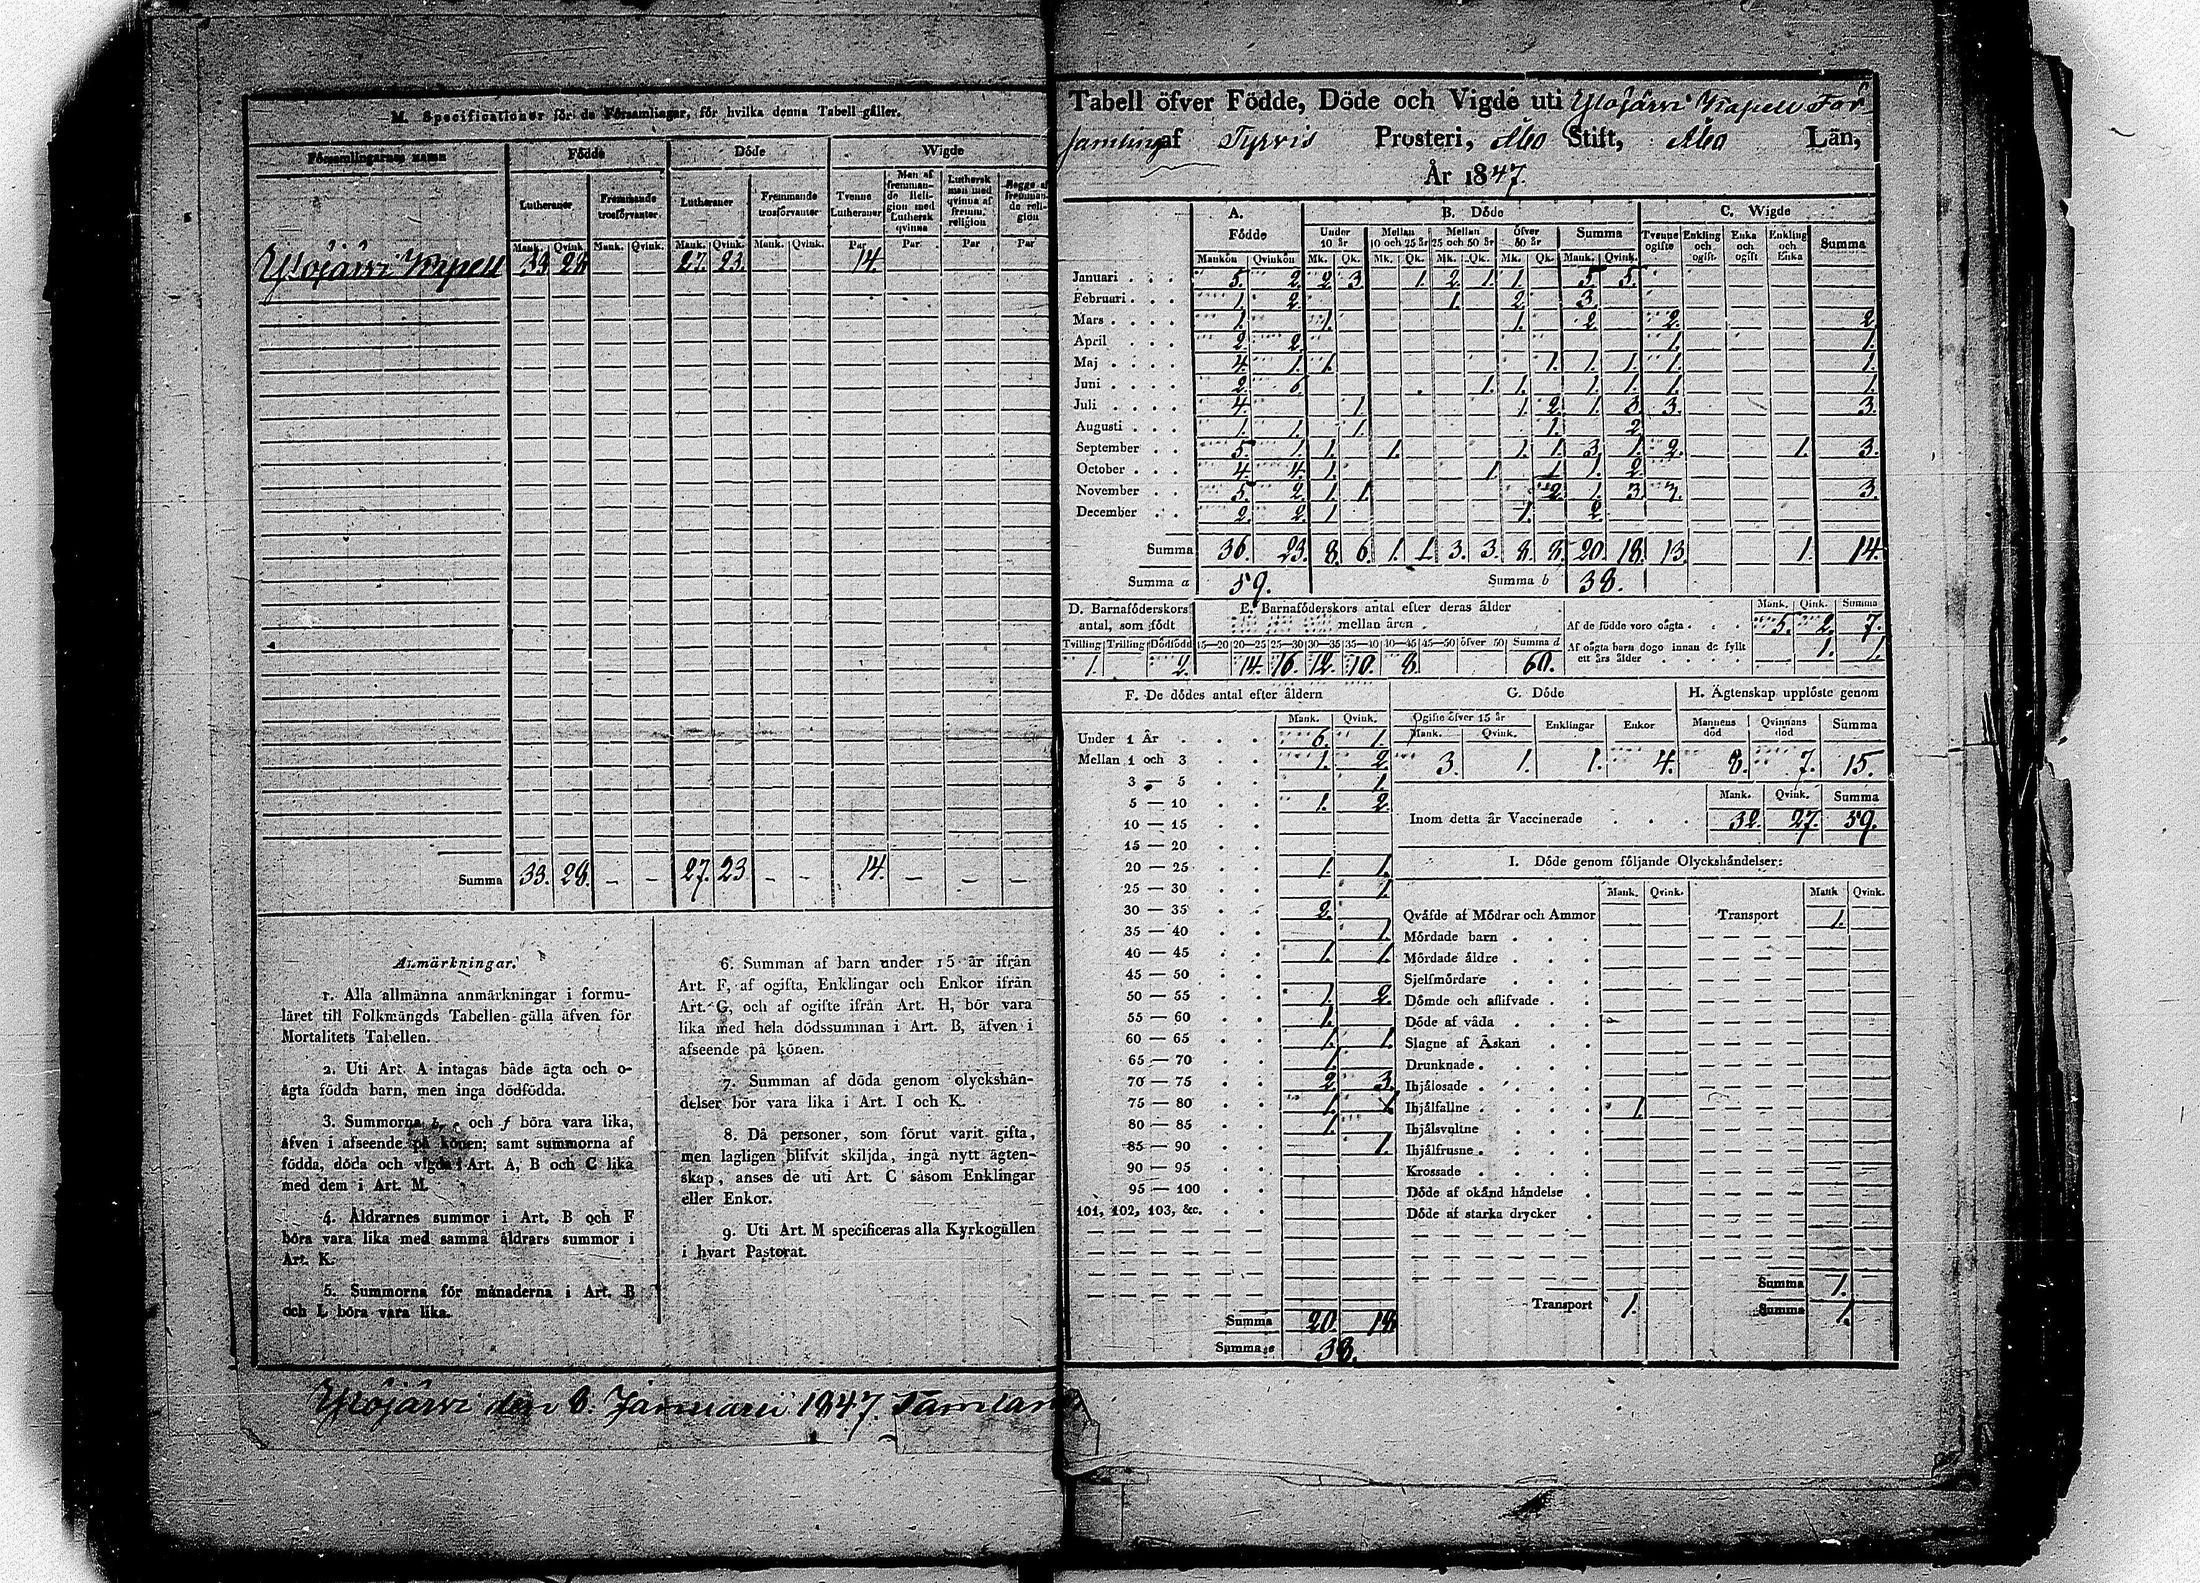 M. Specificationer för de Församlingar, för hvilka denna Tabell gäller.
Församlingarnes namn Födde Döde Wigde
Lutheraner Fremmande trosförvanter Lutheraner Fremmande trosförvanter Tvenne Lutheraner Man af fremmande Religion med Luthersk qvinna Luthersk man med qvinna af fremm. religion Begge af fremmande religion
Mank. Qvink. Mank. Qvink. Mank. Qvink. Mank. Qvink. Par Par Par Par
Ylöjärvi Kapell 33 28 27. 23. 14.
Summa 33. 28. – – 27. 23 – – 14. – – –
Anmärkningar.
1. Alla allmänna anmärkningar i formu-
läret till Folkmängds Tabellen gälla äfven för
Mortalitets Tabellen.
2. Uti Art. A intagas både ägta och o-
ägta födda barn, men inga dödfödda.
3. Summorna b, e och f böra vara lika,
äfven i afseende på könen; samt summorna af
födda, döda och vigda i Art. A, B och C lika
med dem i Art. M.
4. Åldrarnes summor i Art. B och F
böra vara lika med samma åldrars summor i
Art. K.
5. Summorna för månaderna i Art. B
och L böra vara lika.
6. Summan af barn under 15 år ifrån
Art. F, af ogifta, Enklingar och Enkor ifrån
Art. G, och af ogifte ifrån Art. H, bör vara
lika med hela dödssumman i Art. B, äfven i
afseende på könen.
7. Summan af döda genom olyckshän-
delser bör vara lika i Art. I och K.
8. Då personer, som förut varit gifta,
men lagligen blifvit skiljda, ingå nytt ägten-
skap, anses de uti Art. C såsom Enklingar
eller Enkor.
9. Uti Art. M specificeras alla Kyrkogällen
i hvart Pastorat.
Ylöjärvi den 8. Januarii 1847.
Tabell öfver Födde, Döde och Vigde uti Ylöjärvi Kapell För
samling af Tyrvis Prosteri, Åbo Stift, Åbo Län,
År 1847.
A. Födde B. Döde C. Wigde
Under 10 år Mellan 10 och 25 år Mellan 25 och 50 år Öfver 50 år Summa Tvenne ogifte Enkling och ogift Enka och ogift Enkling och Enka Summa
Mankön Qvinkön Mk. Qk. Mk. Qk. Mk. Qk. Mk. Qk. Mank. Qvink.
Januari 5. 2. 2 3 1. 2. 1. 1. 5 5.
Februari 1. 2. 1. 2. 3.
Mars 1. 1. 1. 2. 2. 2.
April 2. 2. 1. 1.
Maj 4. 1. 1. 1. 1. 1. 1. 1.
Juni 2. 6. 1. 1. 1. 1. 1. 1.
Juli 4. 1 1. 2. 1. 3 3. 3.
Augusti 1. 1. 1. 1. 2.
September 5. 1. 1. 1. 1. 1. 3. 1. 2. 1. 3.
October 4. 4. 1. 1. 1 1. 2.
November 5. 2. 1 1. 2. 1. 3. 3. 3.
December 2. 2. 1 1. 2.
Summa 36. 23. 8. 6. 1. 1. 3. 3. 8. 8. 20 18. 13. 1. 14.
Summa a 59. Summa b 38.
D. Barnaföderskors antal, som födt
Tvilling Trilling Dödfödd
1. 2.
E. Barnaföderskors antal efter deras ålder
mellan åren
15—20 20—25 25—30 30—35 35—40 40—45 45—50 öfver 50 Summa d
14. 16. 12. 10. 8. 60.
Mank. Qink. Summa
Af de födde voro oägta 5. 2. 7.
Af oägta barn dogo innan de fyllt
ett års ålder 1. 1.
F. De dödes antal efter åldern
Mank. Qvink.
Under 1 År 6. 1.
Mellan 1 och 3 1. 2.
3 — 5 1.
5 — 10 1. 2.
10 — 15
15 — 20
20 — 25 1. 1.
25 — 30 1.
30 — 35 2.
35 — 40 1.
40 — 45 1. 1.
45 — 50
50 — 55 1. 2.
55 — 60 1.
60 — 65 1. 1.
65 — 70 1.
70 — 75 2. 3.
75 — 80 1. 1
80 — 85 1.
85 — 90 1.
90 — 95
95 — 100
101, 102, 103, &c.
Summa 20. 18
Summa e 38.
G. Döde
Ogifte öfver 15 år Enklingar Enkor
Mank. Qvink.
3. 1. 1. 4.
H. Ägtenskap upplöste genom
Mannens död Qvinnans död Summa
8. 7. 15.
Mank. Qvink. Summa
Inom detta år Vaccinerade 32. 27. 59.
I. Döde genom följande Olyckshändelser:
Mank. Qvink. Mank Qvink.
Qväfde af Mödrar och Ammor Transport 1.
Mördade barn
Mördade äldre
Sjelfmördare
Dömde och aflifvade
Döde af våda
Slagne af Åskan
Drunknade
Ihjälosade
Ihjälfallne 1.
Ihjälsvultne
Ihjälfrusne
Krossade
Döde af okänd händelse
Döde af starka drycker
Summa 1.
Transport 1. Summa 1.